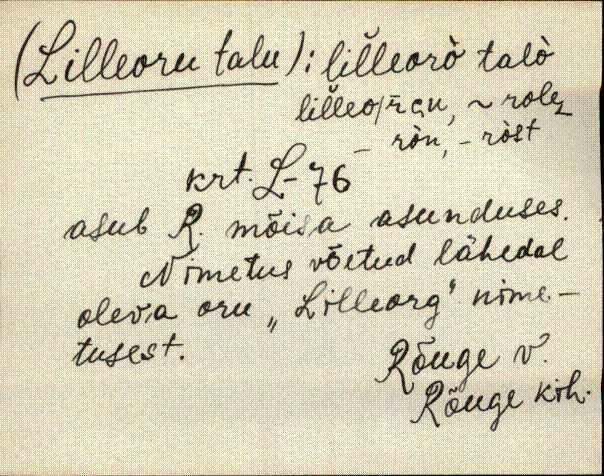 (Lilleoru talu): lil̆leorò talò
lil̆leo/r̄an, ~ role
– ròn, – ròst
krt. L-76
asub R. mõisa asunduses.
Nimetus võetud lähedal
oleva oru „Lilleorg" nime-
tusest.
Rõuge v.
Rõuge kih.